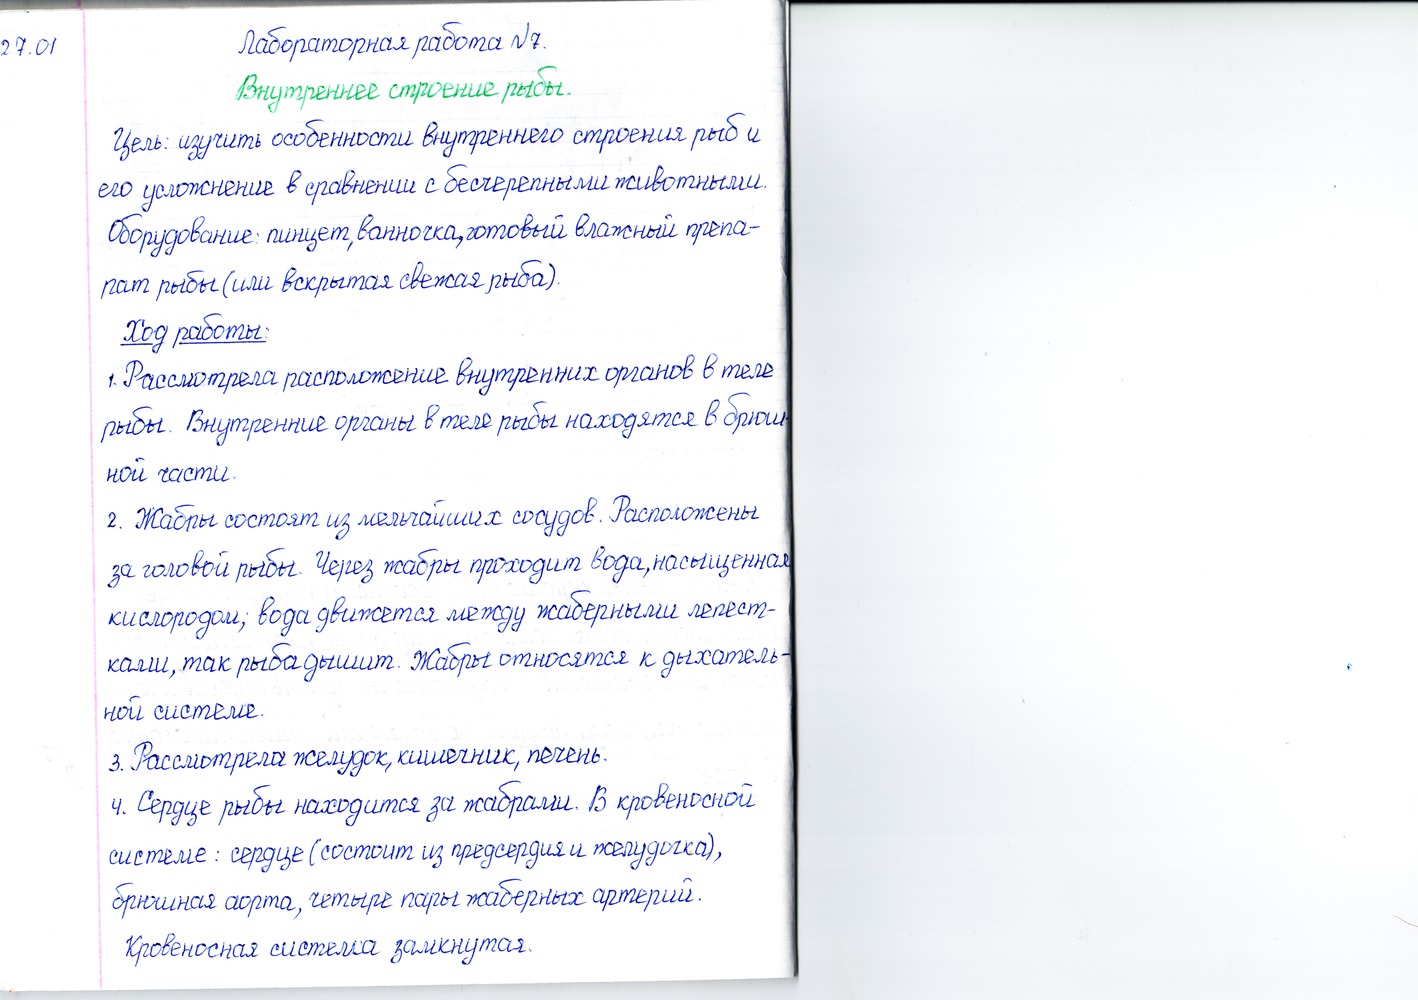 27.01
Лабораторная работа №7.
Внутреннее строение рыбы.
Цель: изучить особенности внутреннего строения рыб и
его усложнение в сравнении с бесчерепными животными.
Оборудование: пинцет, ванночка, готовый влажный препа-
рат рыбы (или вскрытая свежая рыба).
Ход работы:
1. Рассмотрела расположение внутренних органов в теле
рыбы. Внутренние органы в теле рыбы находятся в брюш-
ной части.
2. Жабры состоят из мельчайших сосудов. Расположены
за головой рыбы. Через жабры проходит вода, насыщенная
кислородом; вода движется между жаберными лепест-
ками, так рыба дышит. Жабры относятся к дыхатель-
ной системе.
3. Рассмотрела желудок, кишечник, печень.
4. Сердце рыбы находится за жабрами. В кровеносной
системе: сердце (состоит из предсердия и желудочка),
брюшная аорта, четыре пары жаберных артерий.
Кровеносная система замкнутая.